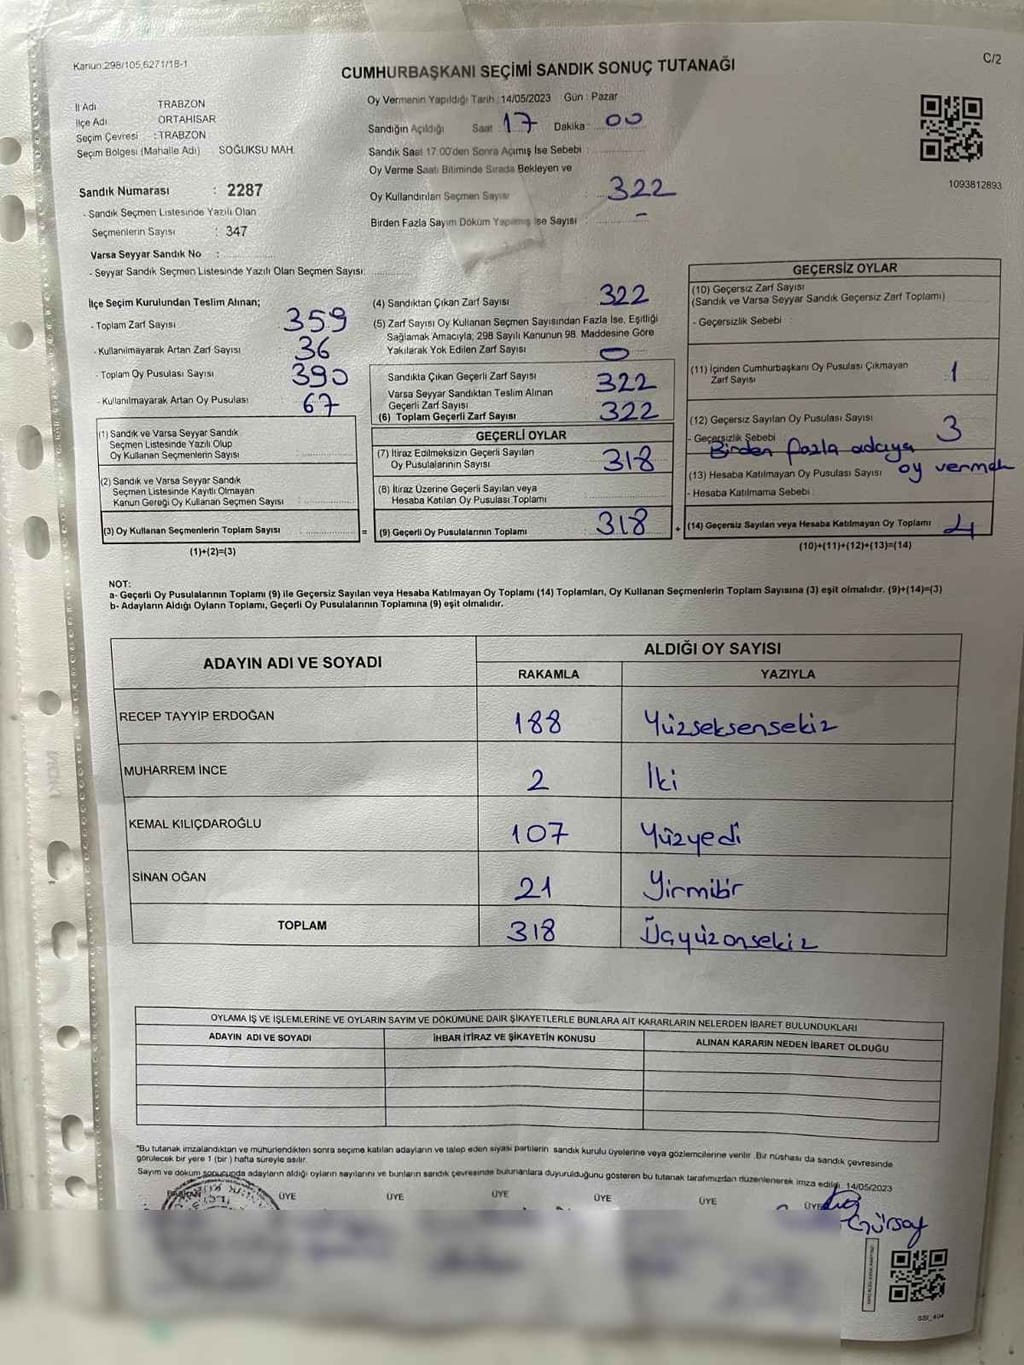 Kanun:298/105,6271/18-1
C/2
CUMHURBAŞKANI SEÇİMİ SANDIK SONUÇ TUTANAĞI
İl Adı TRABZON
İlçe Adı ORTAHİSAR
Seçim Çevresi : TRABZON
Seçim Bölgesi (Mahalle Adı) SOĞUKSU MAH.
Oy Vermenin Yapıldığı Tarih : 14/05/2023 Gün : Pazar
Sandığın Açıldığı Saat 17 Dakika 00
Sandık Saat 17:00'den Sonra Açımış İse Sebebi
Oy Verme Saati Bitiminde Sırada Bekleyen ve
Oy Kullandırılan Seçmen Sayısı 322
Birden Fazla Sayım Döküm Yapılmış İse Sayısı -
1093812893
Sandık Numarası : 2287
- Sandık Seçmen Listesinde Yazılı Olan
Seçmenlerin Sayısı : 347
Varsa Seyyar Sandık No :
- Seyyar Sandık Seçmen Listesinde Yazılı Olan Seçmen Sayısı:
İlçe Seçim Kurulundan Teslim Alınan;
- Toplam Zarf Sayısı 359
- Kullanılmayarak Artan Zarf Sayısı 36
- Toplam Oy Pusulası Sayısı 390
- Kullanılmayarak Artan Oy Pusulası 67
(1) Sandık ve Varsa Seyyar Sandık
Seçmen Listesinde Yazılı Olup
Oy Kullanan Seçmenlerin Sayısı :
(2) Sandık ve Varsa Seyyar Sandık
Seçmen Listesinde Kayıtlı Olmayan
Kanun Gereği Oy Kullanan Seçmen Sayısı :
(3) Oy Kullanan Seçmenlerin Toplam Sayısı =
(1)+(2)=(3)
(4) Sandıktan Çıkan Zarf Sayısı 322
(5) Zarf Sayısı Oy Kullanan Seçmen Sayısından Fazla İse, Eşitliği
Sağlamak Amacıyla; 298 Sayılı Kanunun 98. Maddesine Göre
Yakılarak Yok Edilen Zarf Sayısı 0
Sandıkta Çıkan Geçerli Zarf Sayısı 322
Varsa Seyyar Sandıktan Teslim Alınan
Geçerli Zarf Sayısı
(6) Toplam Geçerli Zarf Sayısı 322
GEÇERLİ OYLAR
(7) İtiraz Edilmeksizin Geçerli Sayılan
Oy Pusulalarının Sayısı 318
(8) İtiraz Üzerine Geçerli Sayılan veya
Hesaba Katılan Oy Pusulası Toplamı
(9) Geçerli Oy Pusulalarının Toplamı 318 +
GEÇERSİZ OYLAR
(10) Geçersiz Zarf Sayısı
(Sandık ve Varsa Seyyar Sandık Geçersiz Zarf Toplamı)
- Geçersizlik Sebebi :
(11) İçinden Cumhurbaşkanı Oy Pusulası Çıkmayan
Zarf Sayısı 1
(12) Geçersiz Sayılan Oy Pusulası Sayısı 3
- Geçersizlik Sebebi Birden fazla adaya
oy vermek
(13) Hesaba Katılmayan Oy Pusulası Sayısı
- Hesaba Katılmama Sebebi
(14) Geçersiz Sayılan veya Hesaba Katılmayan Oy Toplamı 4
(10)+(11)+(12)+(13)=(14)
NOT:
a- Geçerli Oy Pusulalarının Toplamı (9) ile Geçersiz Sayılan veya Hesaba Katılmayan Oy Toplamı (14) Toplamları, Oy Kullanan Seçmenlerin Toplam Sayısına (3) eşit olmalıdır. (9)+(14)=(3)
b- Adayların Aldığı Oyların Toplamı, Geçerli Oy Pusulalarının Toplamına (9) eşit olmalıdır.
ADAYIN ADI VE SOYADI
ALDIĞI OY SAYISI
RAKAMLA YAZIYLA
RECEP TAYYİP ERDOĞAN 188 Yüzseksensekiz
MUHARREM İNCE 2 İki
KEMAL KILIÇDAROĞLU 107 Yüzyedi
SİNAN OĞAN 21 Yirmibir
TOPLAM 318 Üçyüzonsekiz
OYLAMA İŞ VE İŞLEMLERİNE VE OYLARIN SAYIM VE DÖKÜMÜNE DAİR ŞİKAYETLERLE BUNLARA AİT KARARLARIN NELERDEN İBARET BULUNDUKLARI
ADAYIN ADI VE SOYADI İHBAR İTİRAZ VE ŞİKAYETİN KONUSU ALINAN KARARIN NEDEN İBARET OLDUĞU
*Bu tutanak imzalandıktan ve mühürlendikten sonra seçime katılan adayların ve talep eden siyasi partilerin sandık kurulu üyelerine veya gözlemcilerine verilir. Bir nüshası da sandık çevresinde
görülecek bir yere 1 (bir) hafta süreyle asılır.
Sayım ve döküm sonucunda adayların aldığı oyların sayılarını ve bunların sandık çevresinde bulunanlara duyurulduğunu gösteren bu tutanak tarafımızdan düzenlenerek imza edildi. 14/05/2023
ÜYE ÜYE ÜYE ÜYE ÜYE ÜYE
Gürsoy